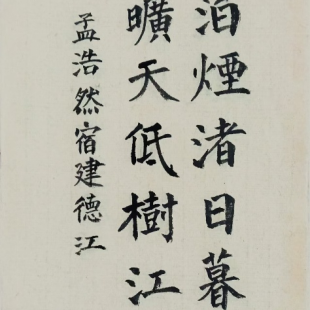 泊煙渚日暮
曠天低樹江
孟浩然宿建德江